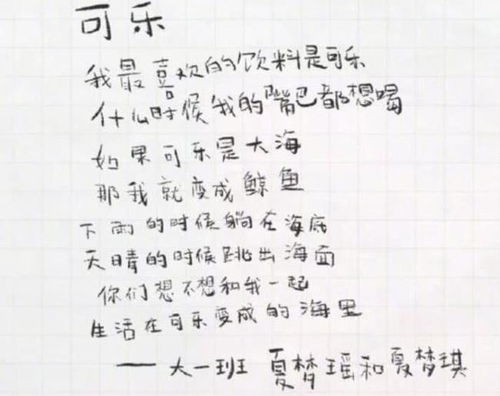 可乐
我最喜欢的饮料是可乐
什么时候我的嘴巴都想喝
如果可乐是大海
那我就变成鲸鱼
下雨的时候躺在海底
天晴的时候跳出海面
你们想不想和我一起
生活在可乐变成的海里
——大一班 夏梦瑶和夏梦琪